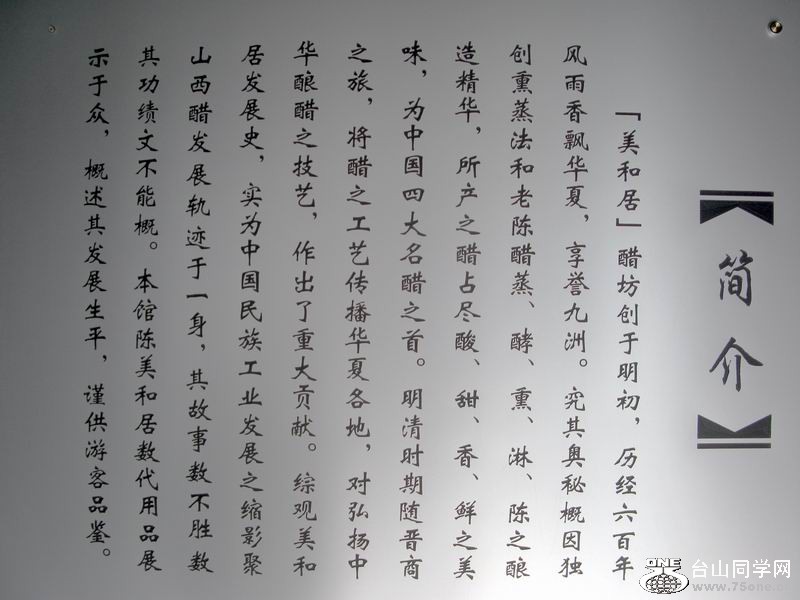 【简介】
「美和居」醋坊创于明初，历经六百年
风雨香飘华夏，享誉九洲。究其奥秘概因独
创熏蒸法和老陈醋蒸、酵、熏、淋、陈之酿
造精华，所产之醋占尽酸、甜、香、鲜之美
味，为中国四大名醋之首。明清时期随晋商
之旅，将醋之工艺传播华夏各地，对弘扬中
华酿醋之技艺，作出了重大贡献。综观美和
居发展史，实为中国民族工业发展之缩影聚
山西醋发展轨迹于一身，其故事数不胜数
其功绩文不能概。本馆陈美和居数代用品展
示于众，概述其发展生平，谨供游客品鉴。
ONE
台山同学网
www.75one.c